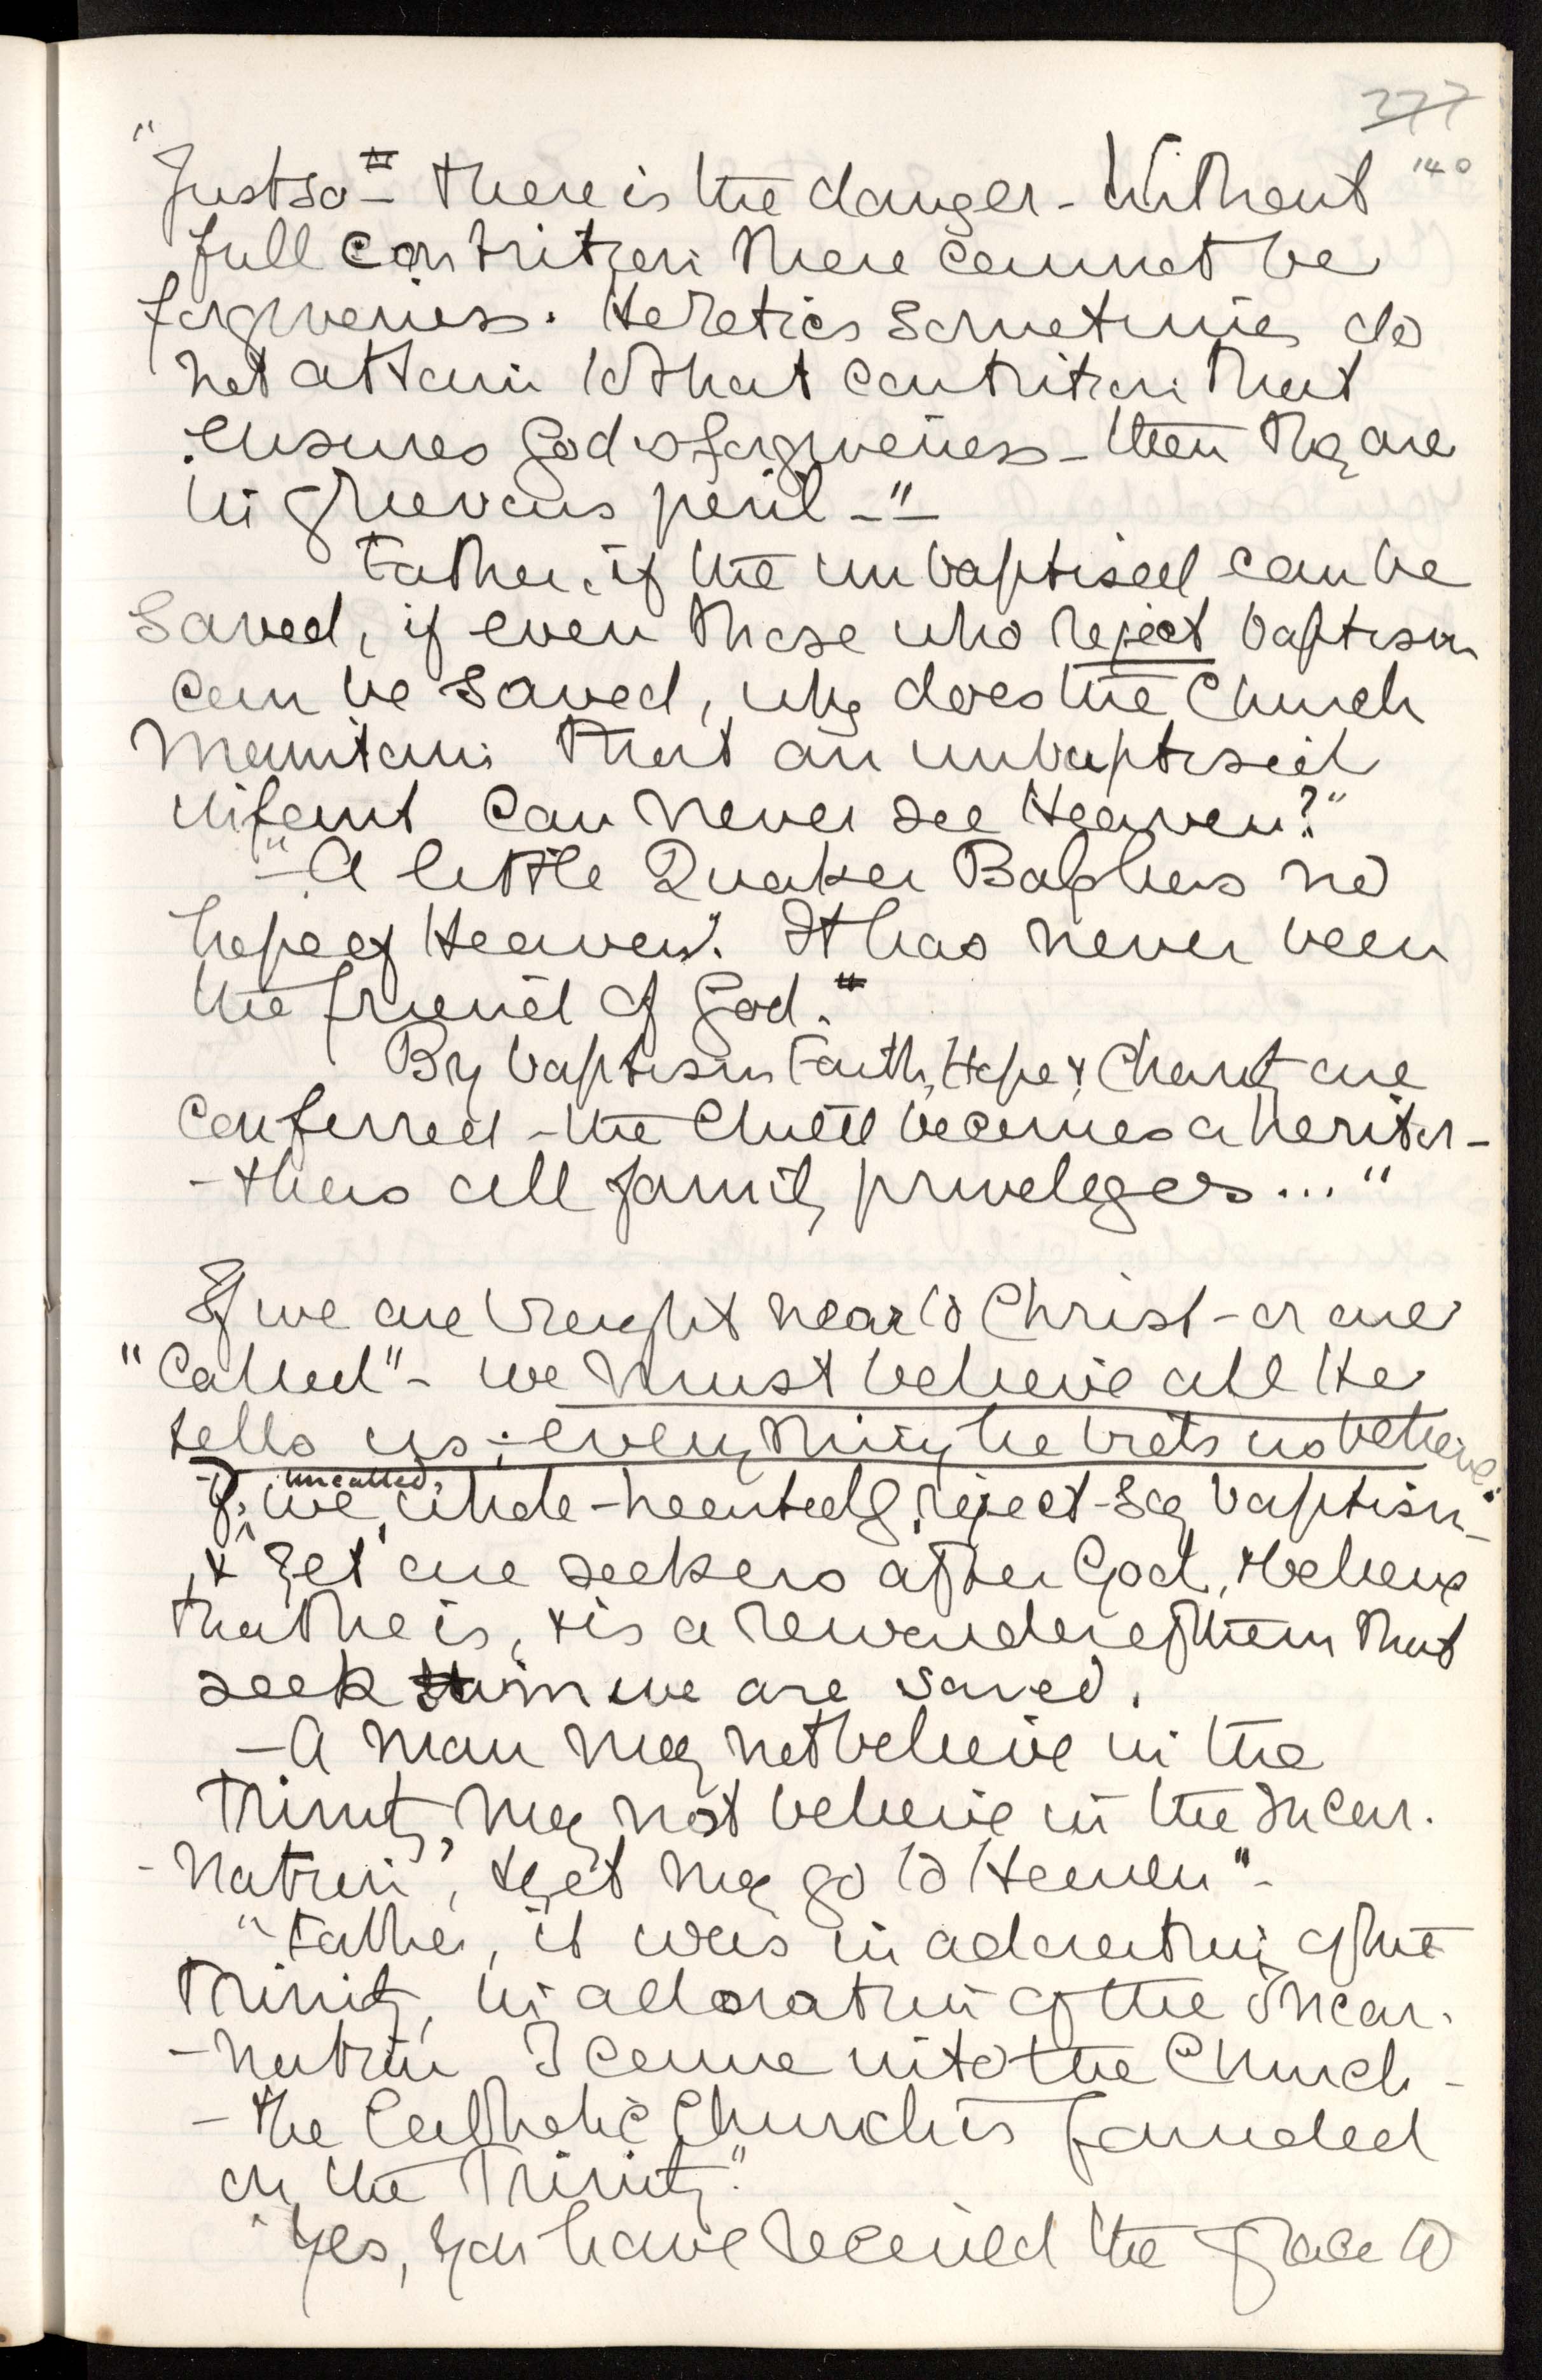 277
140
"Just so" – there is the danger – Without
full contrition there cannot be
forgiveness. Heretics sometimes do
not attain to that contrition that
ensures God's forgiveness – then they are
in grievous peril –"–
Father, if the unbaptised can be
saved, if even those who reject baptism
can be saved, why does the Church
maintain that an unbaptised
infant can never see Heaven?"
"– A little Quaker Baby has no
hope of Heaven". It has never been
the friend of God."
By baptism Faith, Hope & Charity are
conferred – the Child becomes a heritor –
– thus all family priveleges..."
If we are brought near to Christ – or are
"Called" – we must believe all He
tells us; everything he bids us believe.
– If, we, uncalled, whole-heartedly, reject – say baptism –
, & yet are seekers after God, & believe
that he is, & is a rewarder of them that
seek him we are saved.
– A man may not believe in the
Trinity, may not believe in the Incar-
-nation, & yet may go to Heaven" –
"Father, it was in adoration of the
Trinity, in adoration of the Incar-
-nation I came into the Church –
– the Catholic Church is founded
on the Trinity."
"Yes, you have received the grace to